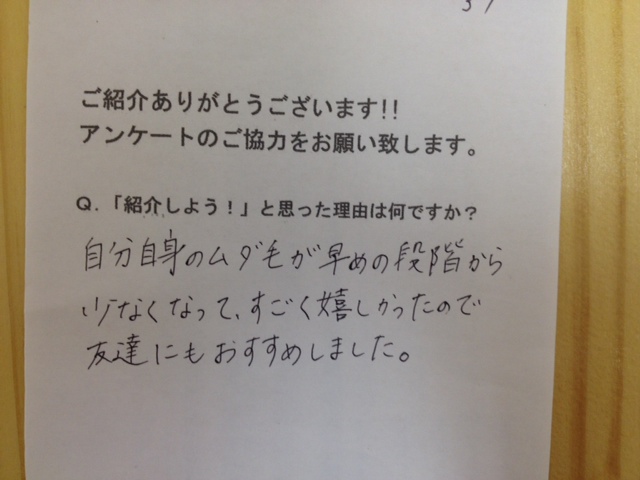 ご紹介ありがとうございます!!
アンケートのご協力をお願い致します。
Q.「紹介しよう!」と思った理由は何ですか?
自分自身のムダ毛が早めの段階から
少なくなって、すごく嬉しかったので
友達にもおすすめしました。